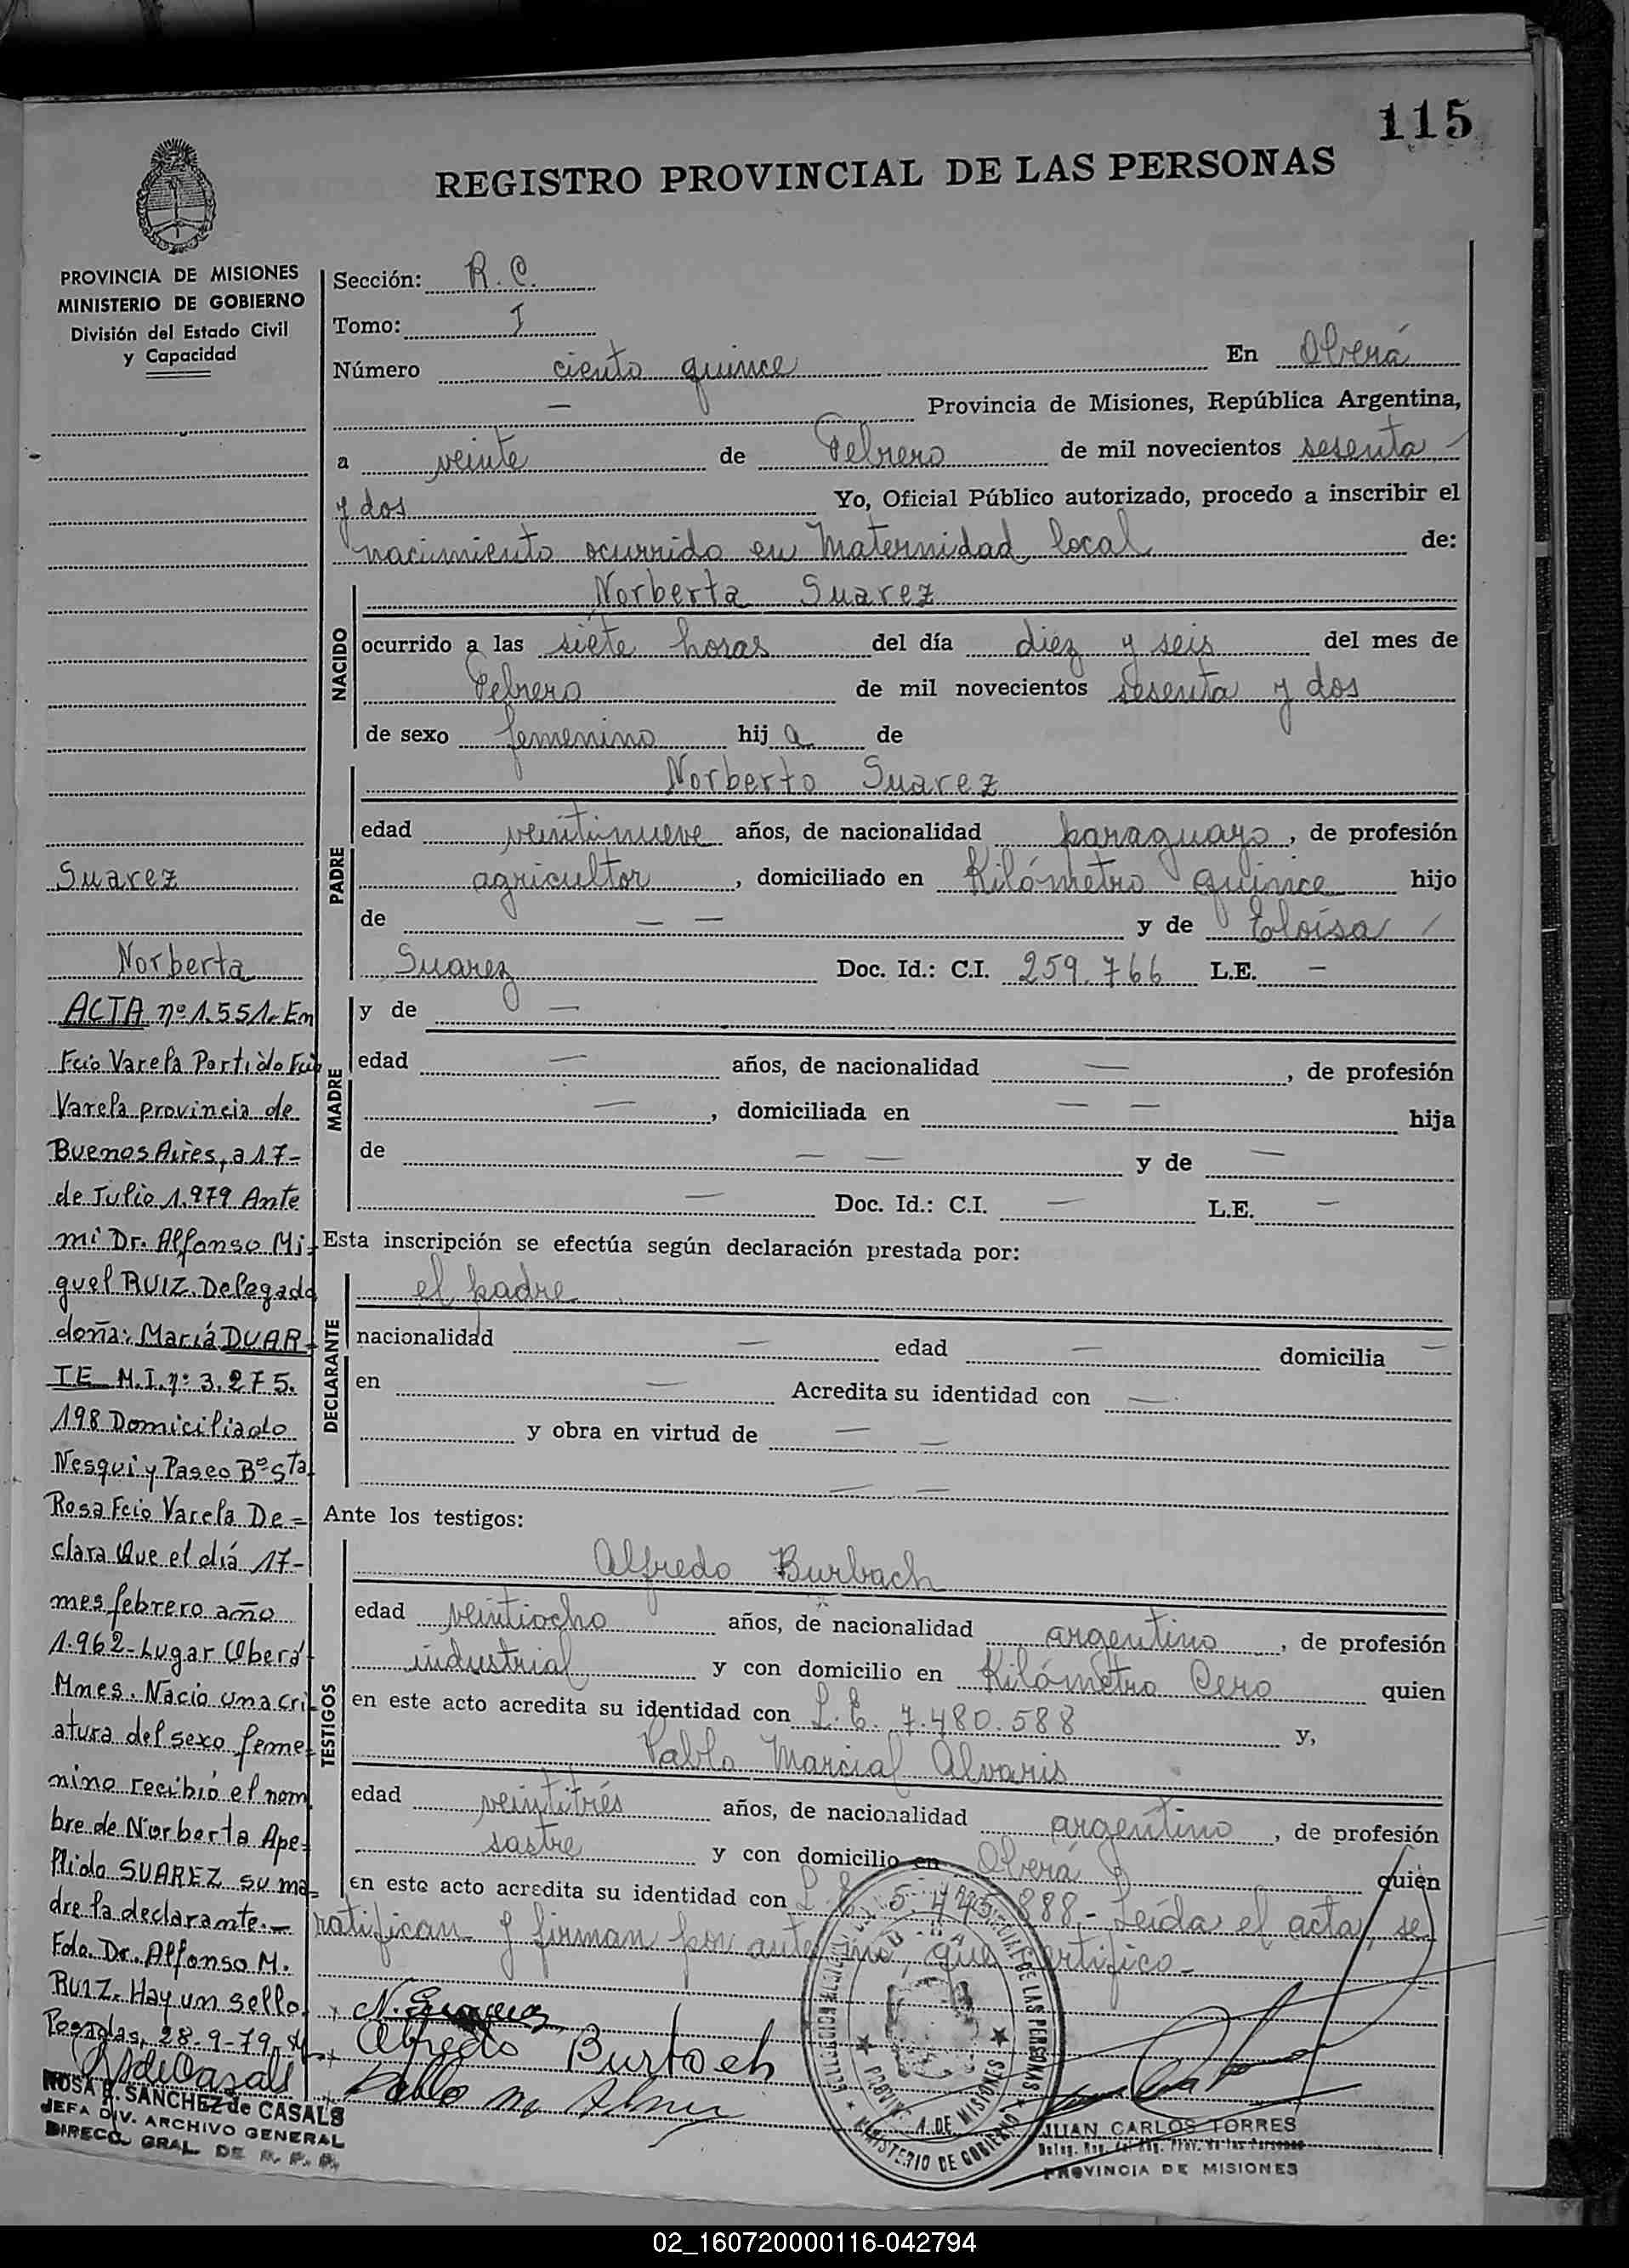 115
REGISTRO PROVINCIAL DE LAS PERSONAS
PROVINCIA DE MISIONES
MINISTERIO DE GOBIERNO
División del Estado Civil
y Capacidad
Sección: R. C.
Tomo: I
Número ciento quince En Oberá
— Provincia de Misiones, República Argentina,
a veinte de Febrero de mil novecientos sesenta
y dos Yo, Oficial Público autorizado, procedo a inscribir el
nacimiento ocurrido en Maternidad local de:
NACIDO
Norberta Suarez
ocurrido a las siete horas del día diez y seis del mes de
Febrero de mil novecientos sesenta y dos
de sexo femenino hij a de
PADRE
Norberto Suarez
edad veintinueve años, de nacionalidad paraguayo, de profesión
agricultor, domiciliado en Kilómetro quince hijo
de — — y de Eloísa
Suarez Doc. Id.: C.I. 259.766 L.E. —
MADRE
y de —
edad — años, de nacionalidad —, de profesión
—, domiciliada en — — hija
de — — y de —
— Doc. Id.: C.I. — L.E. —
Esta inscripción se efectúa según declaración prestada por:
DECLARANTE
el padre
nacionalidad — edad — domicilia —
en — Acredita su identidad con —
y obra en virtud de — —
— —
Ante los testigos:
TESTIGOS
Alfredo Burbach
edad veintiocho años, de nacionalidad argentino, de profesión
industrial y con domicilio en Kilómetro Cero quien
en este acto acredita su identidad con L.E. 7.480.588 y,
Pablo Marcial Alvaris
edad veintitrés años, de nacionalidad argentino, de profesión
sastre y con domicilio en Oberá quien
en este acto acredita su identidad con L.E. 5. 888.- Leída el acta, se
ratifican y firman por ante mí, que certifico.-
N. Suarez
Alfredo Burbach
Pablo M.
DE LAS PERSONAS
PROVINCIA DE MISIONES
MINISTERIO DE GOBIERNO
JUAN CARLOS TORRES
PROVINCIA DE MISIONES
Suarez
Norberta
ACTA nº 1.551. En
Fcio Varela Partido Fcio
Varela provincia de
Buenos Aires, a 17-
de Julio 1.979 Ante
mi Dr. Alfonso Mi-
guel RUIZ. Delegado
doña: Mariá DUAR-
TE M.I. nº 3.275.
198 Domiciliado
Nesqui y Paseo Bº Sta
Rosa Fcio Varela De=
clara Que el diá 17-
mes febrero año
1.962- Lugar Oberá-
Mnes. Nacio una cri-
atura del sexo feme-
nino recibió el nom
bre de Norberta Ape-
llido SUAREZ su ma-
dre la declarante.-
Fdo. Dr. Alfonso M.
RUIZ. Hay un sello.
Posadas, 28-9-79
ROSA E. SANCHEZ de CASALS
JEFA DIV. ARCHIVO GENERAL
DIRECC. GRAL. DE R. P. P.
02_160720000116-042794